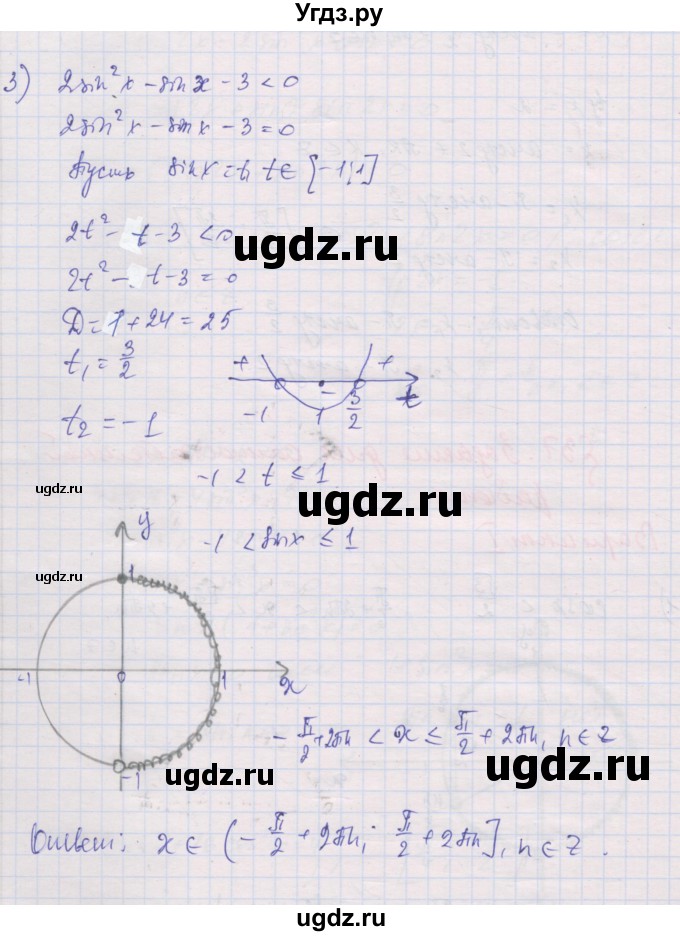 Угдз.ру
3) 2sin²x - sin x - 3 < 0
2sin²x - sin x - 3 = 0
Пусть sin x = t, t ∈ [-1; 1]
2t² - t - 3 < 0
ugdz.ru
2t² - t - 3 = 0
D = 1 + 24 = 25
t₁ = 3/2
+ - +
-1 1 3/2 t
t₂ = -1
ugdz.ru
-1 < t ≤ 1
ugdz.ru
y
-1 < sin x ≤ 1
ugdz.ru
1
-1 0 1 x
-π/2 + 2πn < x ≤ π/2 + 2πn, n ∈ Z
ugdz.ru
ugdz.ru
-1
Ответ: x ∈ (-π/2 + 2πn; π/2 + 2πn], n ∈ Z.
ugdz.ru
ugdz.ru